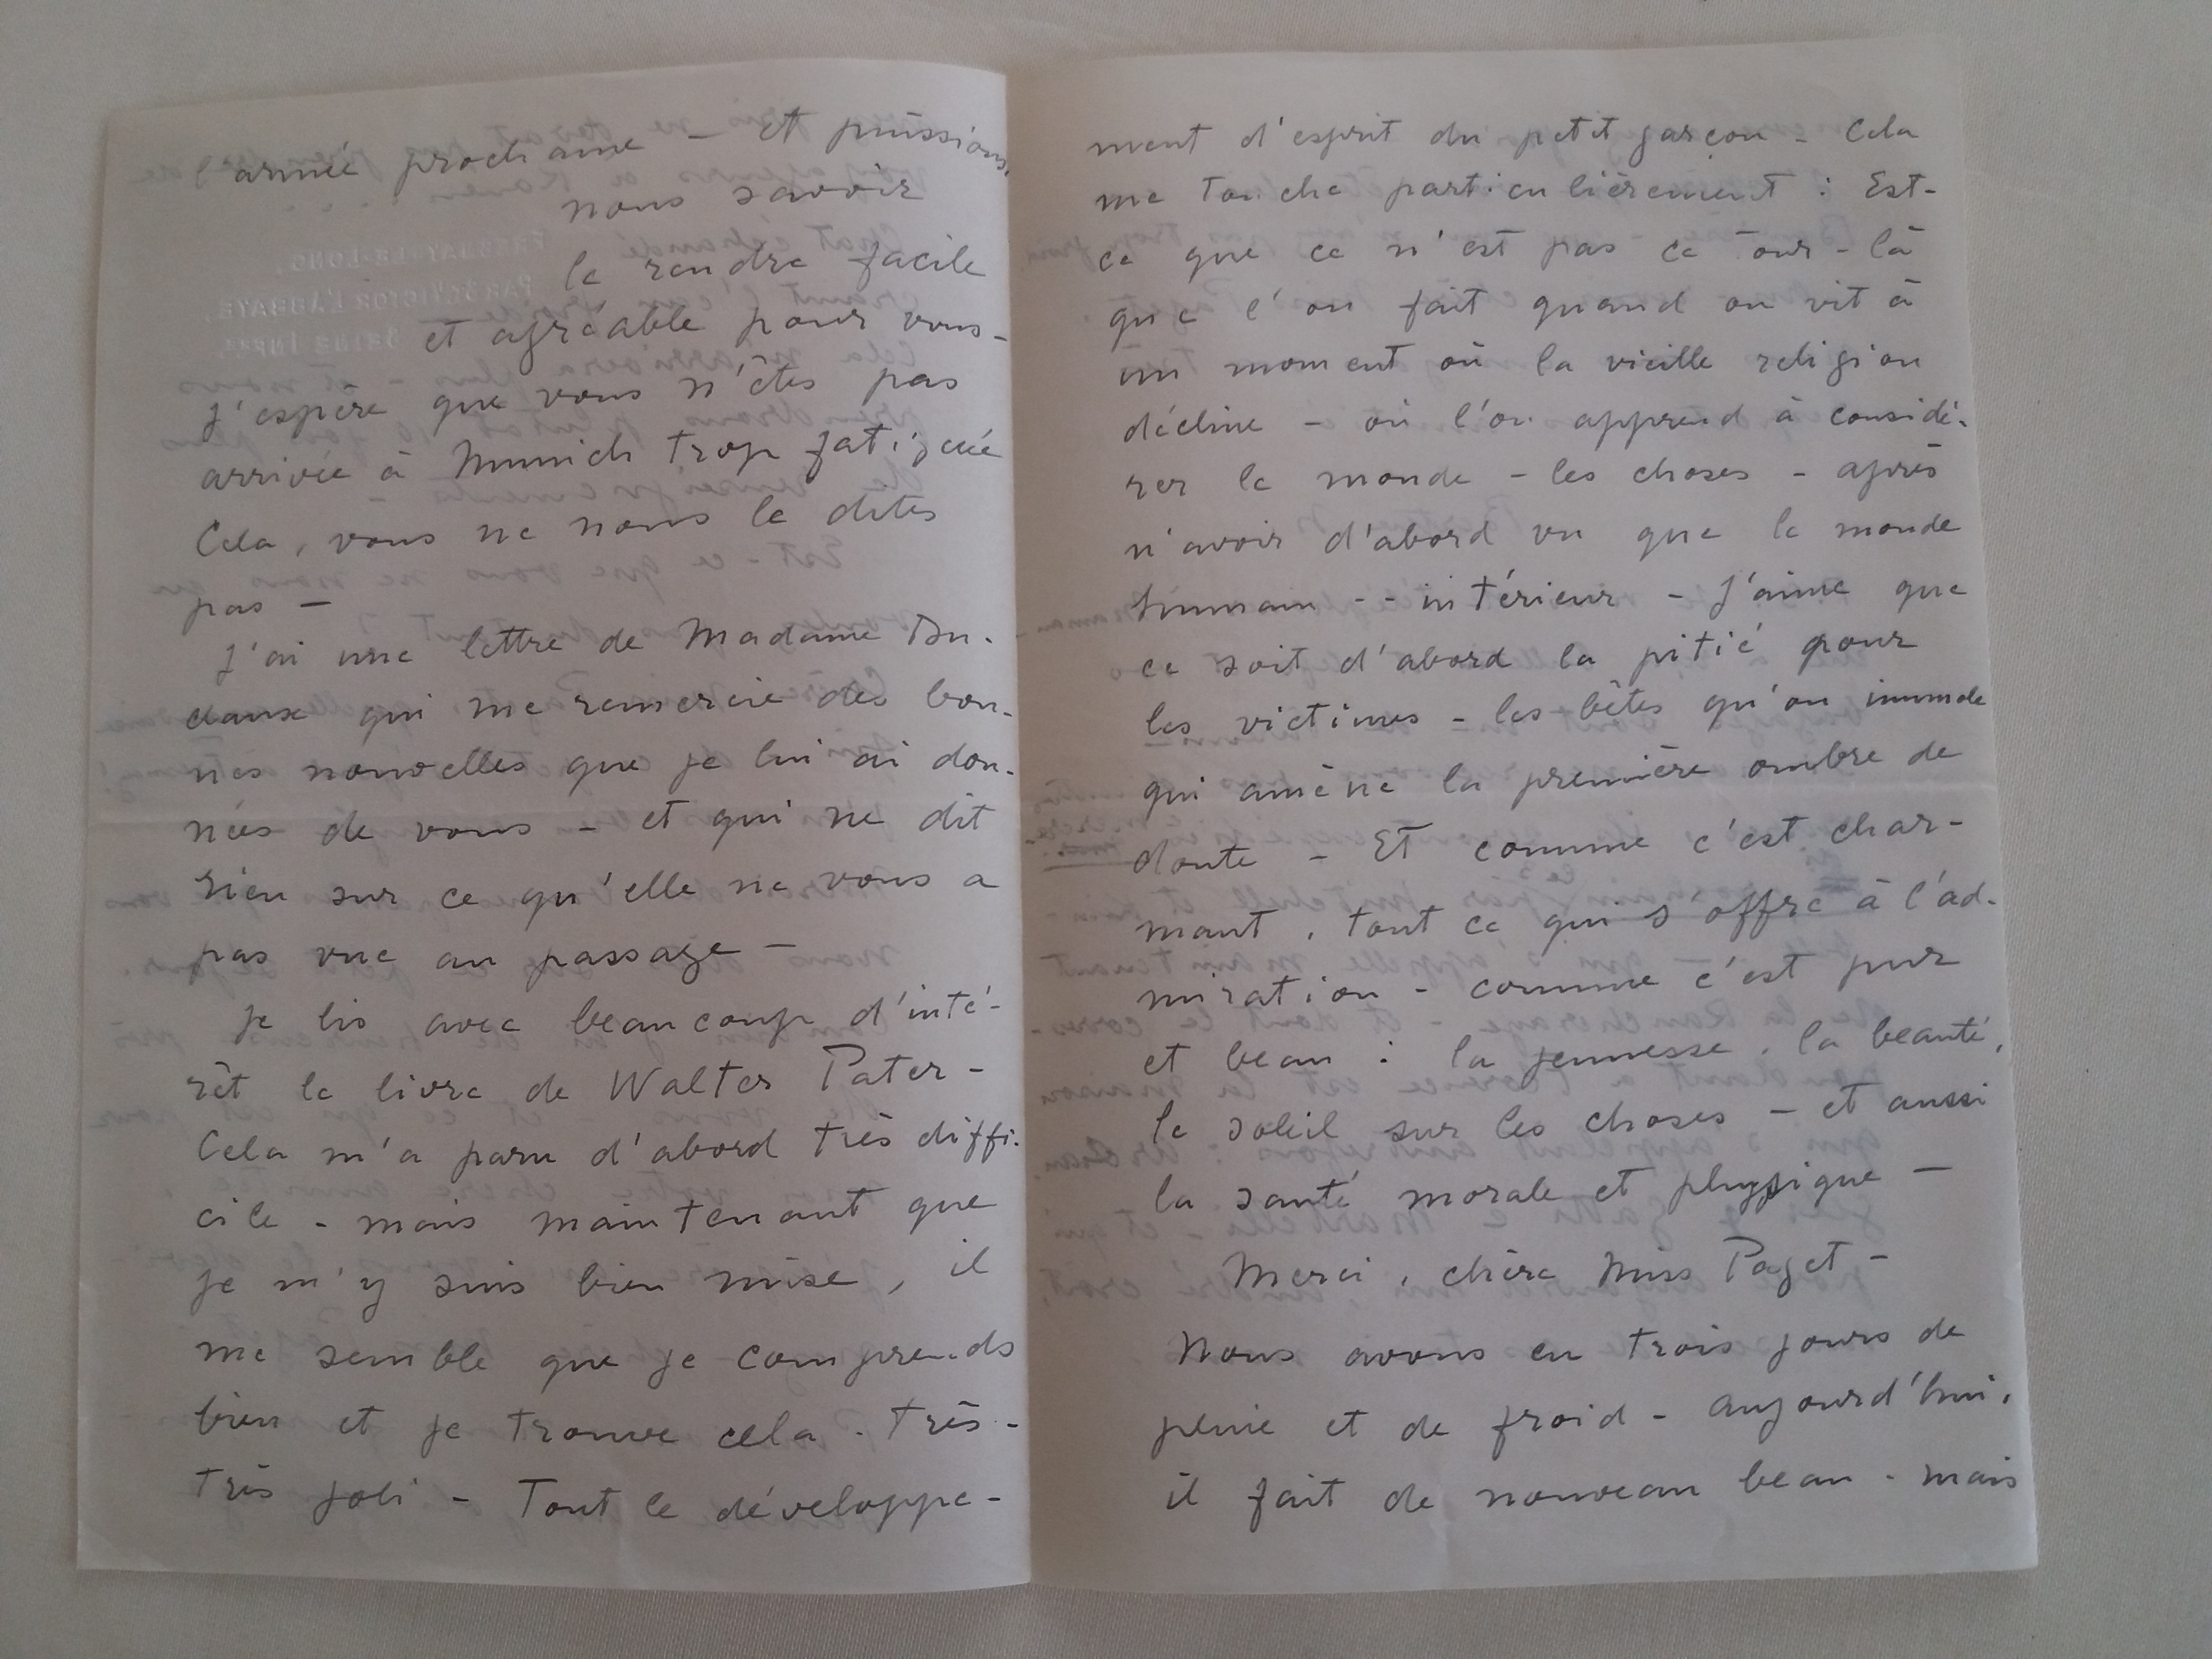 l'année prochaine – Et puissions
nous savoir
le rendre facile
et agréable pour vous –
J'espère que vous n'êtes pas
arrivée à Munich trop fatiguée
Cela, vous ne nous le dites
pas –
J'ai une lettre de Madame Du-
claux qui me remercie des bon-
nes nouvelles que je lui ai don-
nées de vous – et qui ne dit
rien sur ce qu'elle ne vous a
pas vue au passage –
Je lis avec beaucoup d'inté-
rêt le livre de Walter Pater –
Cela m'a paru d'abord très diffi-
cile – mais maintenant que
je m'y suis bien mise, il
me semble que je comprends
bien et je trouve cela . très –
très joli – Tout le développe-
ment d'esprit du petit garçon – Cela
me touche particulièrement : Est-
ce que ce n'est pas ce tour-là
que l'on fait quand on vit à
un moment où la vieille religion
décline – où l'on apprend à considé-
rer le monde – les choses – après
n'avoir d'abord vu que le monde
humain -- intérieur – J'aime que
ce soit d'abord la pitié pour
les victimes – les bêtes qu'on immole
qui amène la première ombre de
doute – Et comme c'est char-
mant, tout ce qui s'offre à l'ad-
miration – comme c'est pur
et beau : la jeunesse, la beauté,
le soleil sur les choses – et aussi
la santé morale et physique –
Merci, chère Miss Paget –
Nous avons eu trois jours de
pluie et de froid – aujourd'hui,
il fait de nouveau beau – mais